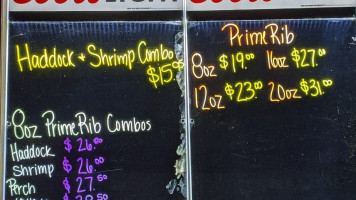 Coors LIGHT
Coors
Haddock + Shrimp Combo
$15.00
8oz Prime Rib Combos
Haddock $26.00
Shrimp $26.00
Perch $27.50
Prime Rib
8oz $19.00 16oz $27.00
12oz $23.00 20oz $31.00